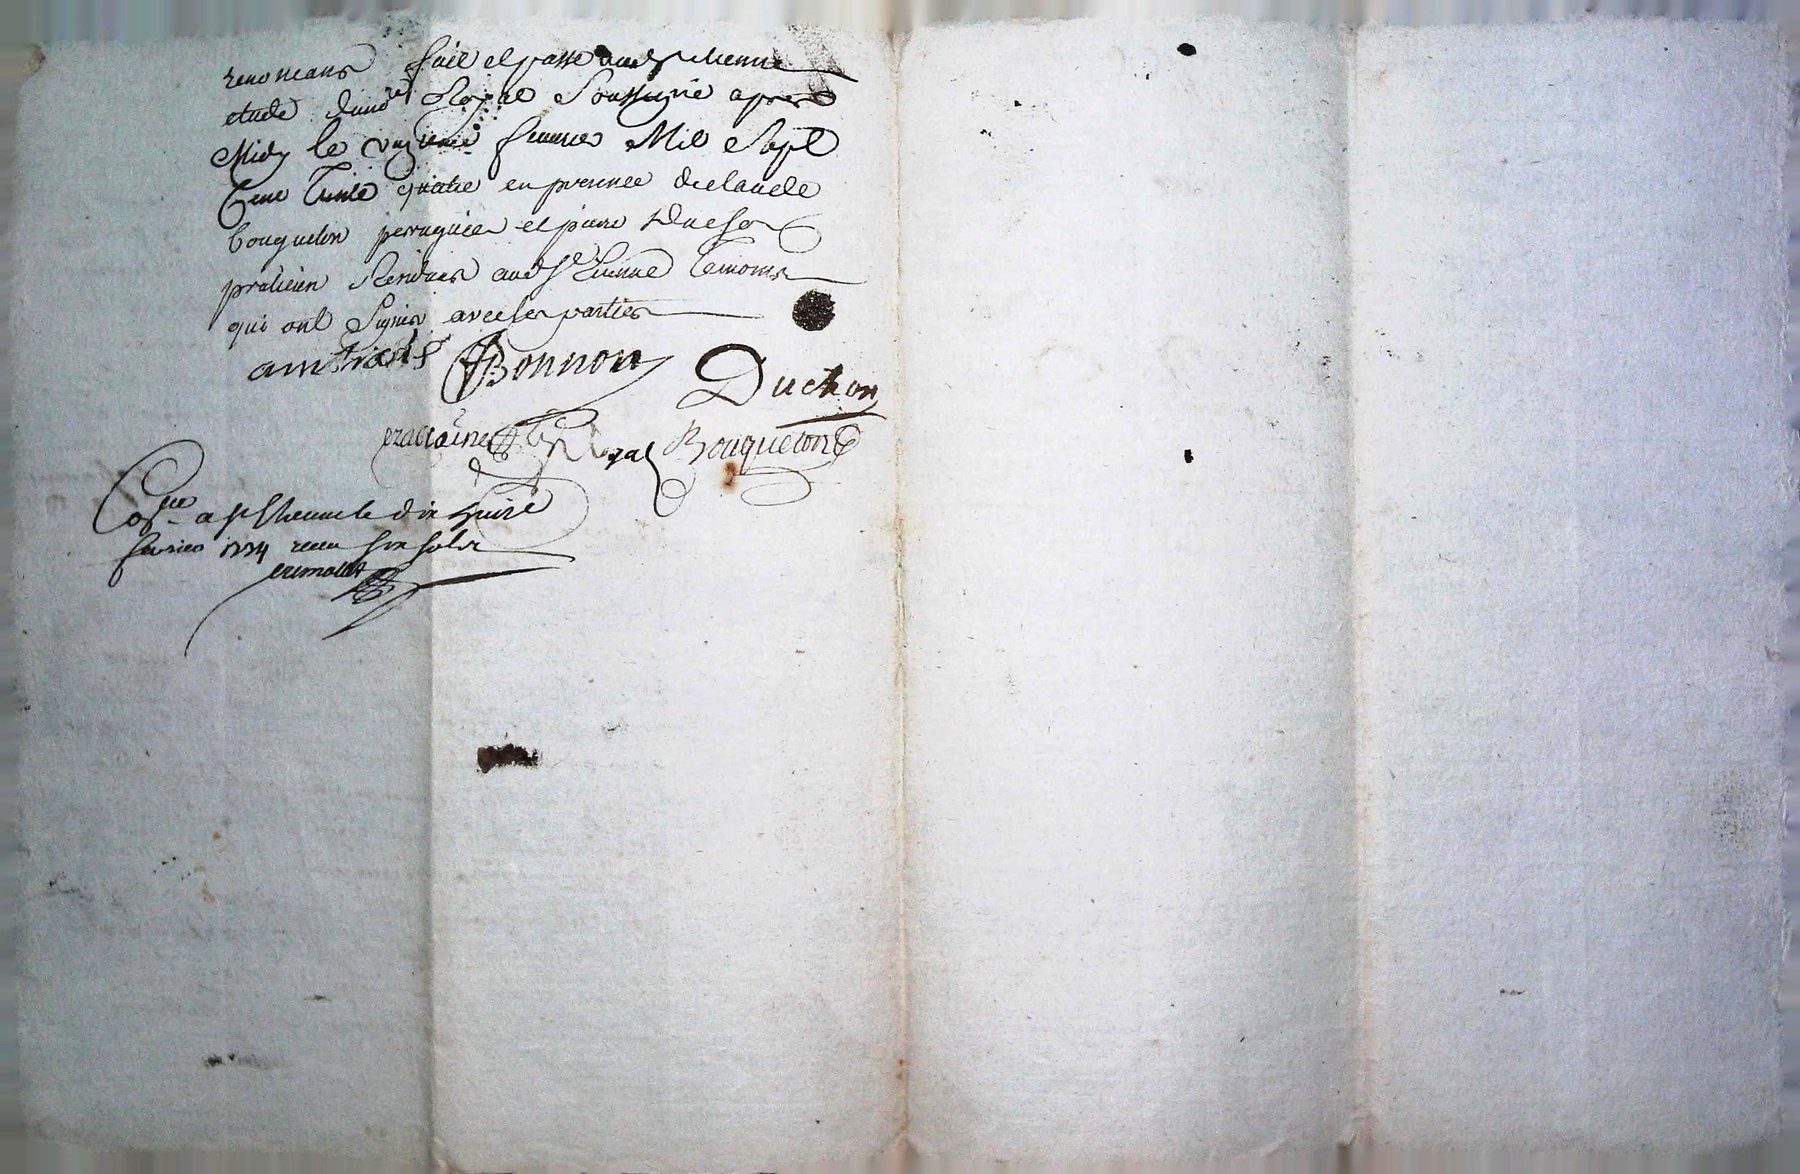 renoncans fait et passé aud st etienne
etude dud no.re Royal Soussigné apres
Midy le fevrier Mil Sept
Cent Trente quatre en presence de claude
bouqueton peruquier et piere Duchon
praticien Residans aud St Etienne temoins
qui ont Signés avec les parties
Bonnon Duchon
Royal Bouqueton
a st Etienne le dix huit
fevrier 1734 receu six sols